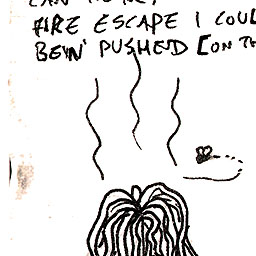 FIRE ESCAPE I COUL
BEEN PUSHED [ON TH